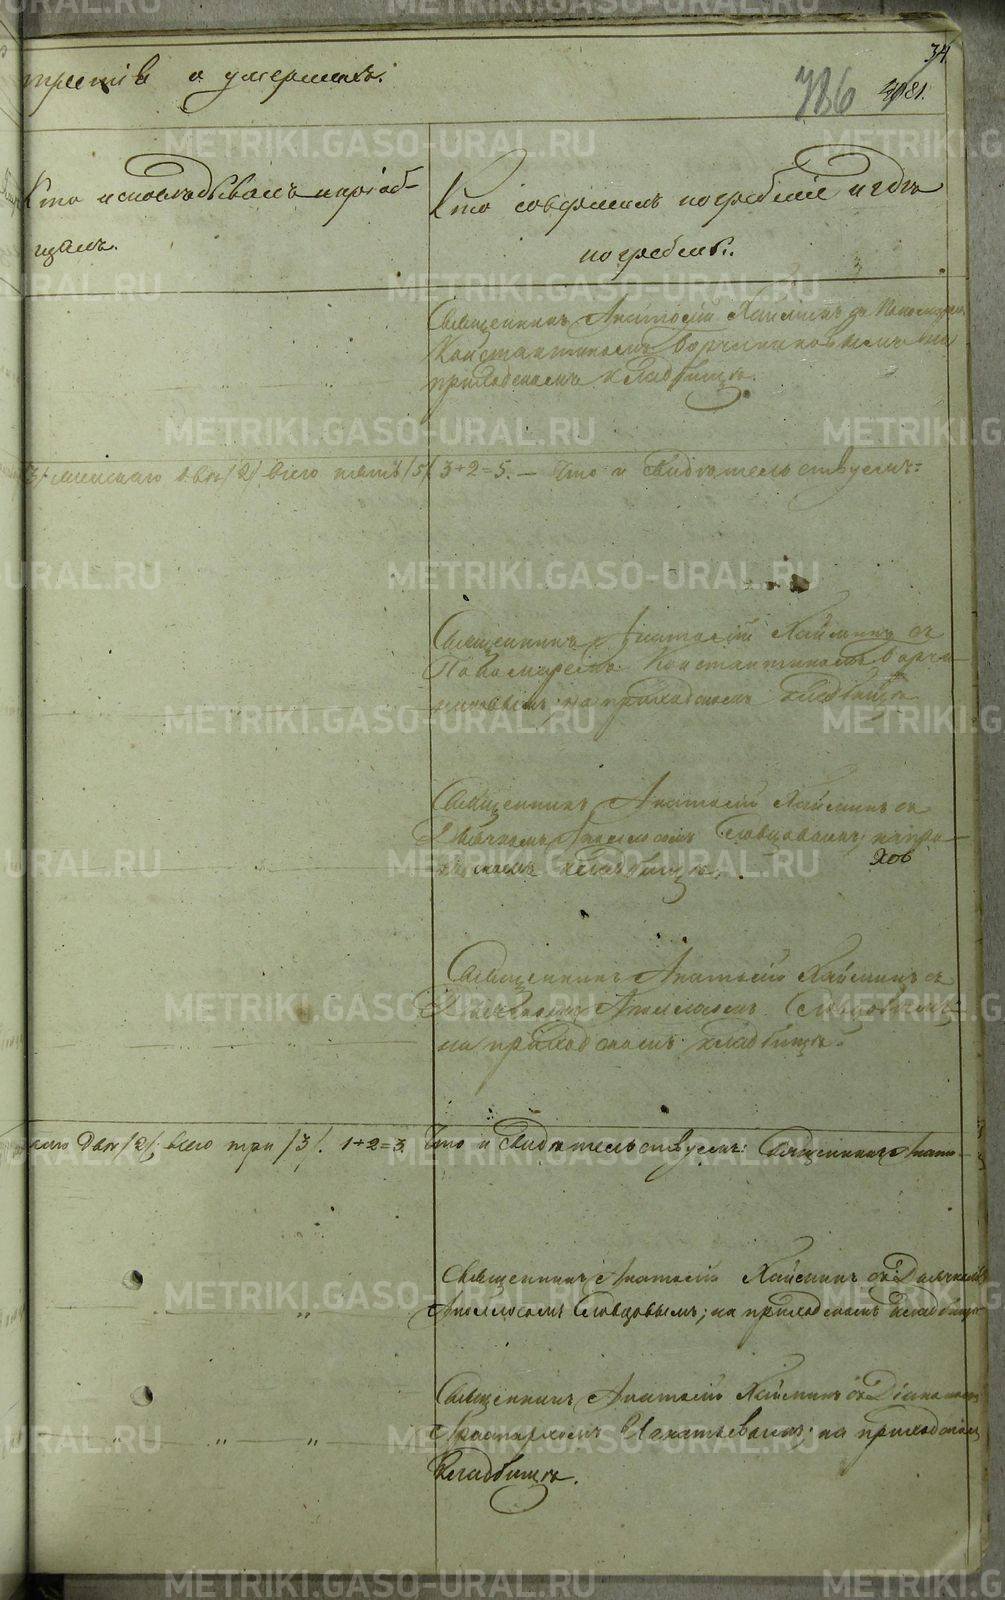 34
третія о умершихъ.
786
Кто исповѣдывалъ и пріоб-
щалъ.
Кто совершалъ погребеніе и гдѣ
погребены.
Священникъ Анатолій Хаймин съ Пономаремъ
Константиномъ на
приходскомъ кладбищѣ.
женскаго два /2/, всего пять /5/ 3+2=5. — Что и свидѣтельствуемъ:
Священникъ Анатолій Хайминъ съ
Пономаремъ Константиномъ
на приходскомъ кладбищѣ
Священникъ Анатолій Хайминъ съ
Дьячкомъ Аполлосомъ Словцовымъ; на при-
хов
скомъ кладбищѣ.
Священникъ Анатолій Хайминъ съ
Дьячкомъ Аполлосомъ Словцовымъ
на приходскомъ кладбищѣ.
два /2/; всего три /3/. 1+2=3. Что и свидѣтельствуемъ: Священникъ Анато-
Священникъ Анатолій Хайминъ съ Дьячкомъ
Аполлосомъ Словцовымъ; на приходскомъ кладбищѣ
Священникъ Анатолій Хайминъ съ Діакономъ
на приходскомъ
кладбищѣ.
METRIKI.GASO-URAL.RU